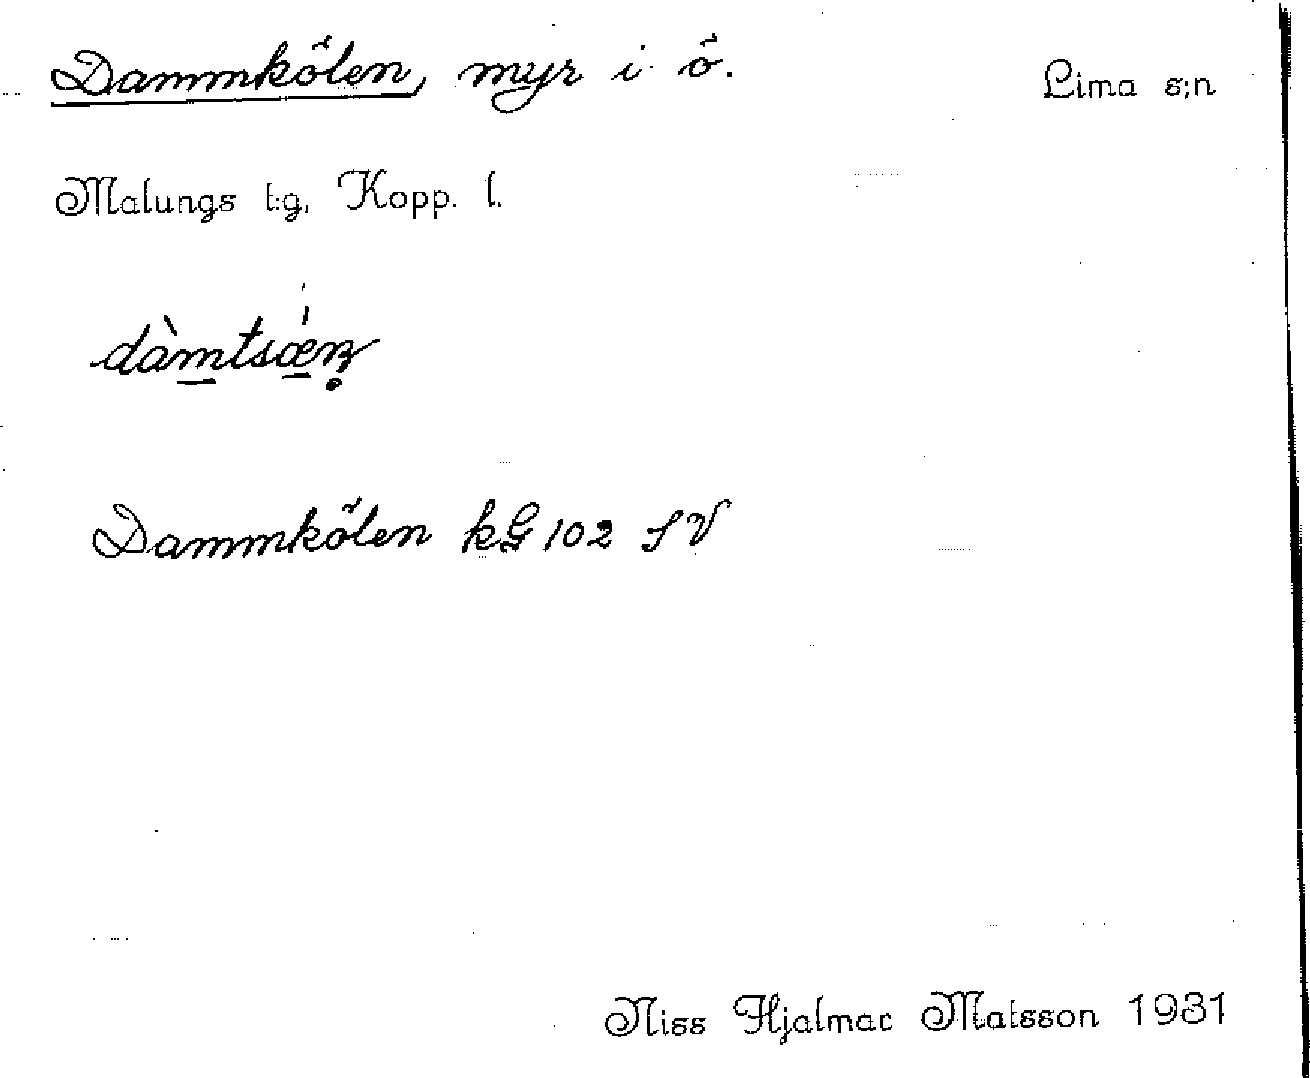 Dammkölen, myr i ö. Lima s:n
Malungs t:g, Kopp. l.
dàmtsǿn̥
Dammkölen kG 102 SV
Niss Hjalmar Matsson 1931